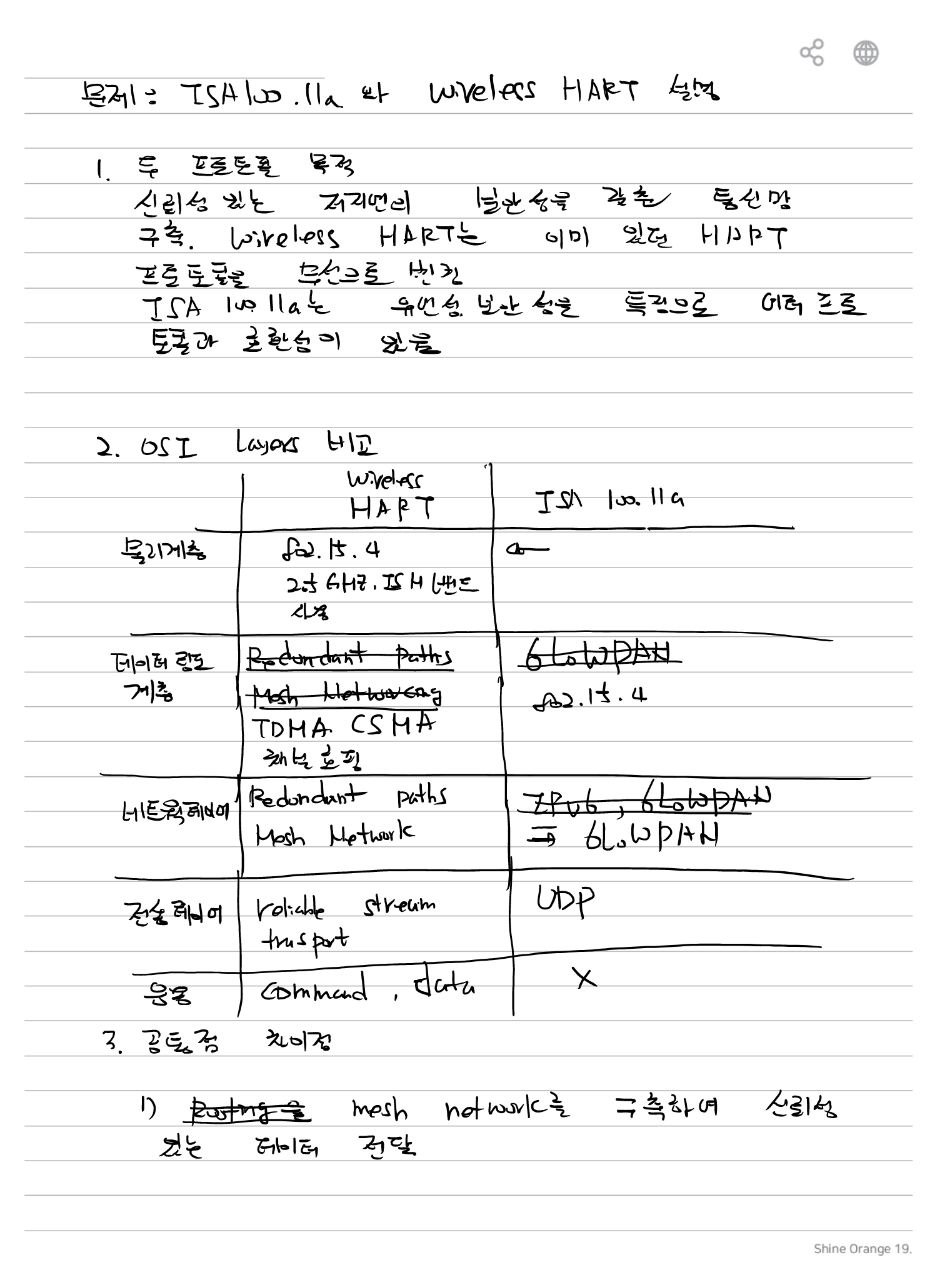 문제 : ISA100.11a 와 Wireless HART 설명
1. 두 프로토콜 목적
신뢰성 있는 저지연의 보안성을 갖춘 통신망
구축. Wireless HART는 이미 있던 HART
프로토콜을 무선으로 변환
ISA 100.11a는 유연성 보안성을 특징으로 여러 프로
토콜과 호환성이 있음
2. OSI Layers 비교
Wireless
HART
ISA 100.11a
물리계층
802.15.4
2.5 GHz. ISM 밴드
사용
←
데이터 링크
계층
Redundant paths
Mesh Networking
TDMA. CSMA
채널 호핑
6LoWPAN
802.15.4
네트웍 레이어
Redundant paths
Mesh Network
IPv6, 6LoWPAN
⇒ 6LoWPAN
전송 레이어
reliable stream
trusport
UDP
응용
Command, data
X
3. 공통점 차이점
1) Routing을 mesh network를 구축하여 신뢰성
있는 데이터 전달
Shine Orange 19.